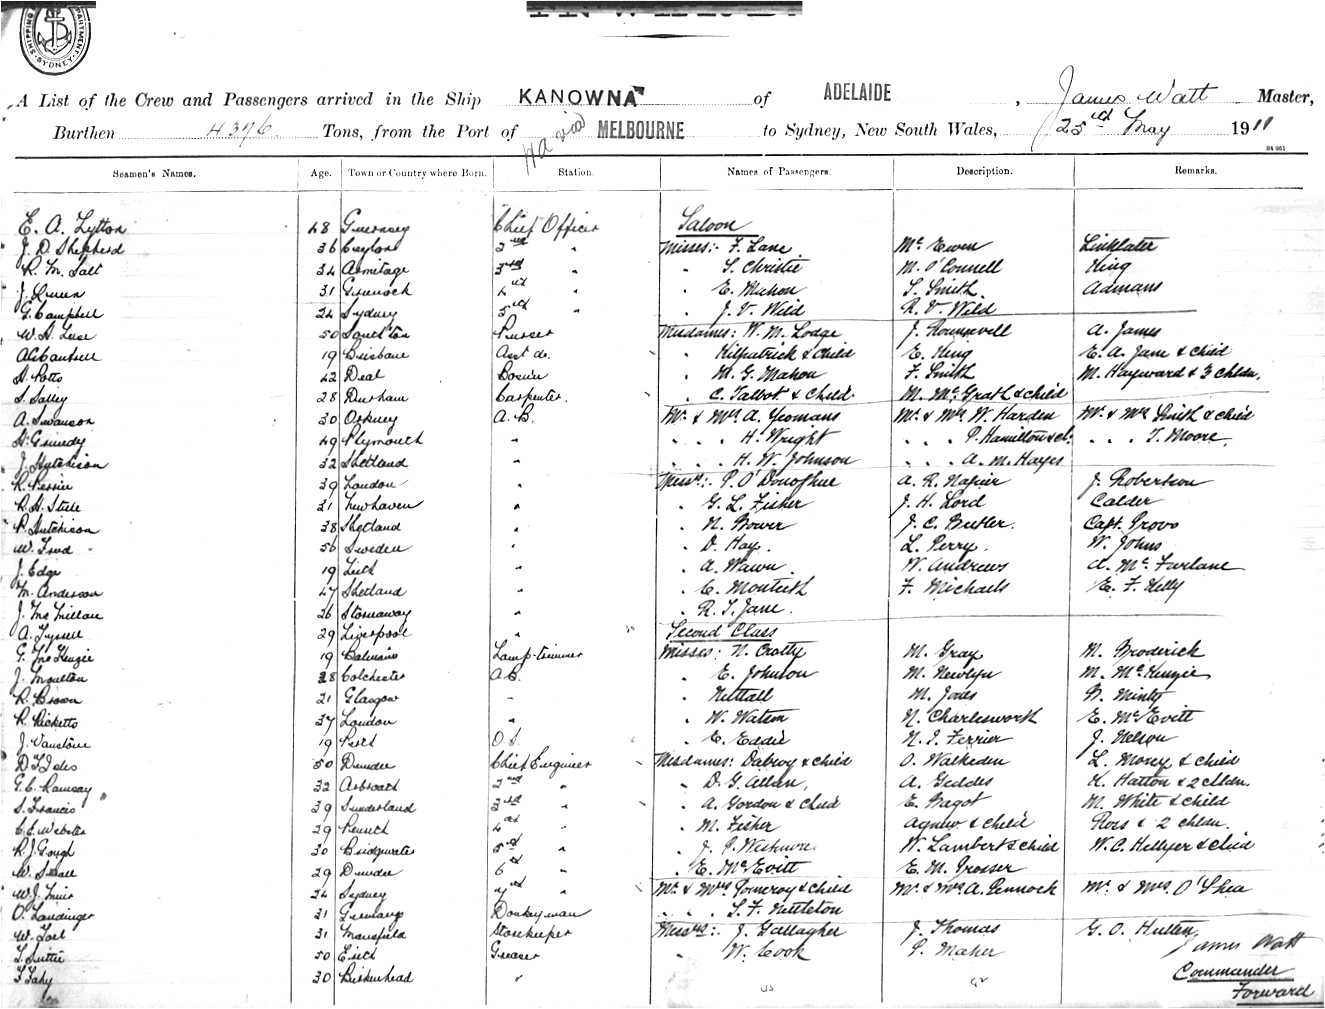 SHIPPING DEPARTMENT SYDNEY
A List of the Crew and Passengers arrived in the Ship KANOWNA of ADELAIDE, James Watt Master,
Burthen 4376 Tons, from the Port of MELBOURNE to Sydney, New South Wales, 23rd May 1911
Seamen's Names. Age. Town or Country where Born. Station. Names of Passengers. Description. Remarks.
E. A. Lytton 48 Guernsey Chief Officer Saloon
J. D. Shepherd 36 Ceylon 2nd " Misses: F. Lane McEwen Linklater
R. M. Salt 34 Armitage 3rd " " S. Christie M. O'Connell King
J. 31 Greenock 4th " " E. Mahon S. Smith Admans
G. Campbell 24 Sydney 5th " " J. V. Wild R. V. Wild
W. H. 50 Purser Mesdames: W. M. Lodge J. Rounsevell A. James
19 Brisbane Asst do. " Kilpatrick & child E. King E. A. Jane & child
H. Potts 42 Deal Bosun " M. G. Mahon F. Smith M. Hayward & 3 chldn.
S. Salley 28 Durham Carpenter. " C. Talbot & child M. McGrath & child
A. Swanson 30 Orkney A. B. Mr. & Mrs A. Yeomans Mr. & Mrs W. Harden Mr. & Mrs Smith & child
H. 49 Plymouth " " " " H. Wright " " " P. Hamilton & ch. " " " T. Moore
J. Hutchison 32 Shetland " " " " H. W. Johnson " " " A. M. Hayes
R. 39 London " Messrs: P. O'Donoghue A. R. Napier J. Robertson
R. H. 21 Newhaven " " G. L. Fisher J. H. Lord Calder
R. Hutchison 38 Shetland " " N. Bower J. C. Butler. Capt. Provo
W. 56 Sweden " " D. Hay. L. Perry. W. Johns
J. Edge 19 Leith " " A. Wawn W. Andrews A. McFarlane
M. Anderson 47 Shetland " " C. Monteith F. Michaels E. F. Kelly
J. McMillan 26 Stornaway " " R. T. Jane.
A. Tyrrell 29 Liverpool " Second Class
G. McKenzie 19 Balmain Lamp-trimmer Misses: N. Crotty M. Gray M. Broderick
J. Moulton 28 Colchester A.B. " E. Johnson M. Newlyn M. McKenzie
R. Brown 21 Glasgow " " Nuttall M. Jones W. Minty
R. Ricketts 37 London " " W. Watson N. Charlesworth E. McEvitt
J. Vanstone 19 Perth O.S. " E. Eddie N. J. Ferrier J. Nelson
D. 50 Dundee Chief Engineer Mesdames: Dabvoy & child O. Walkeden L. Money & child
G. C. Ramsay 32 Arbroath 2nd " " D. G. Allan, A. Geddes K. Hatton & 2 chldn.
S. Francis 39 Sunderland 3rd " " A. Gordon & child E. Bagot M. White & child
C. E. Webster 29 Penrith 4th " " M. Fisher Agnew & child Ross & 2 chldn.
R. J. Gough 30 Bridgwater 5th " " J. P. W. Lambert & child W. C. Hellyer & child
W. 29 Dundee 6th " " E. McEvitt E. M. Grosser
W. J. Muir 24 Sydney 7th " Mr. & Mrs Pomeroy & child Mr. & Mrs A. Pennock Mr. & Mrs. O'Shea
O. Landinger 31 Germany Donkeyman " " " S. F. Nettleton
W. 31 Mansfield Storekeeper Messrs: J. Gallagher J. Thomas G. O. Hutten
50 Erith Greaser " W. Cook P. Maher James Watt
F. Fahy 30 Birkenhead " Commander
Forward